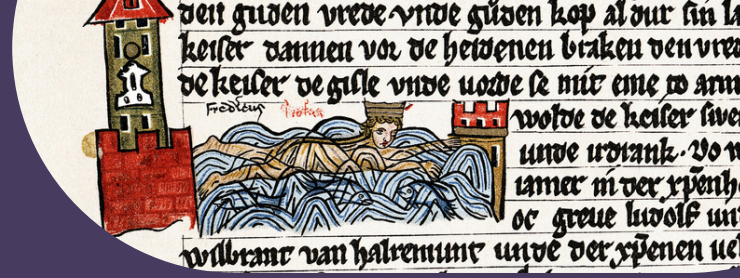 den guden vrede vnde guden kop al dur sin la
keiser dannen vor de heidenen braken den vred
de keiser de gisle vnde uorde se mit eme to arm
wolde de keiser swe
unde irdrank. Do w
iamer in der xp̄enh
oc greue ludolf un
wilbrant van halremunt unde der xp̄enen ue